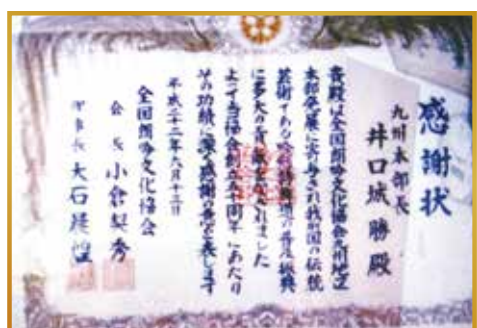 感謝状
九州本部長
井口城勝殿
貴殿は全国朗吟文化協会九州地区
本部発展に寄与され我が国の伝統
芸術である吟剣詩舞道の普及振興
に多大の貢献をなされました
よって当協会創立五十周年にあたり
その功績に深く感謝の意を表します
平成二十二年六月十三日
全国朗吟文化協会
会長 小倉契秀
理事長 大石